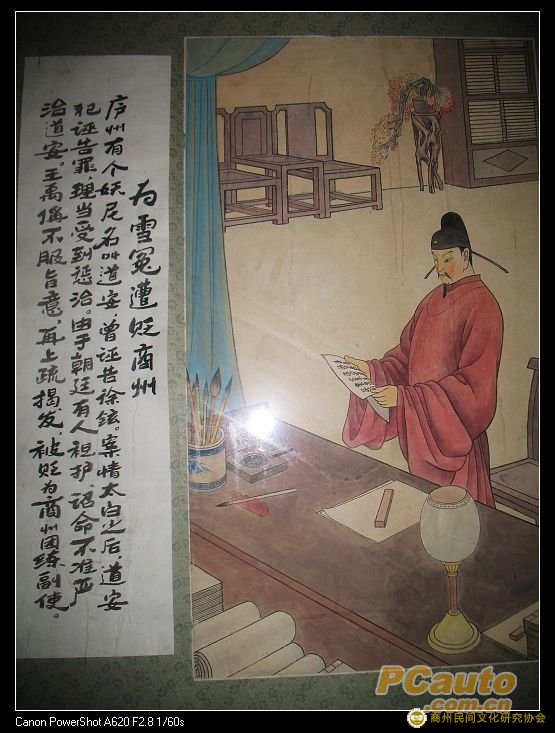 为雪冤遭贬商州
庐州有个妖尼名叫道安,曾诬告徐铉。案情太白之后,道安
犯诬告罪,理当受到惩治。由于朝廷有人袒护,诏命不准严
治道安。王禹偁不服旨意,再上疏揭发,被贬为商州团练副使。
PCauto
.com.cn
商州民间文化研究协会
Canon PowerShot A620 F2.8 1/60s